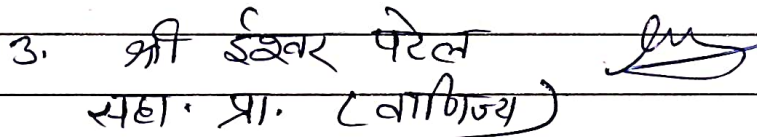 3. श्री ईश्वर पटेल
सहा. प्रा. (वाणिज्य)